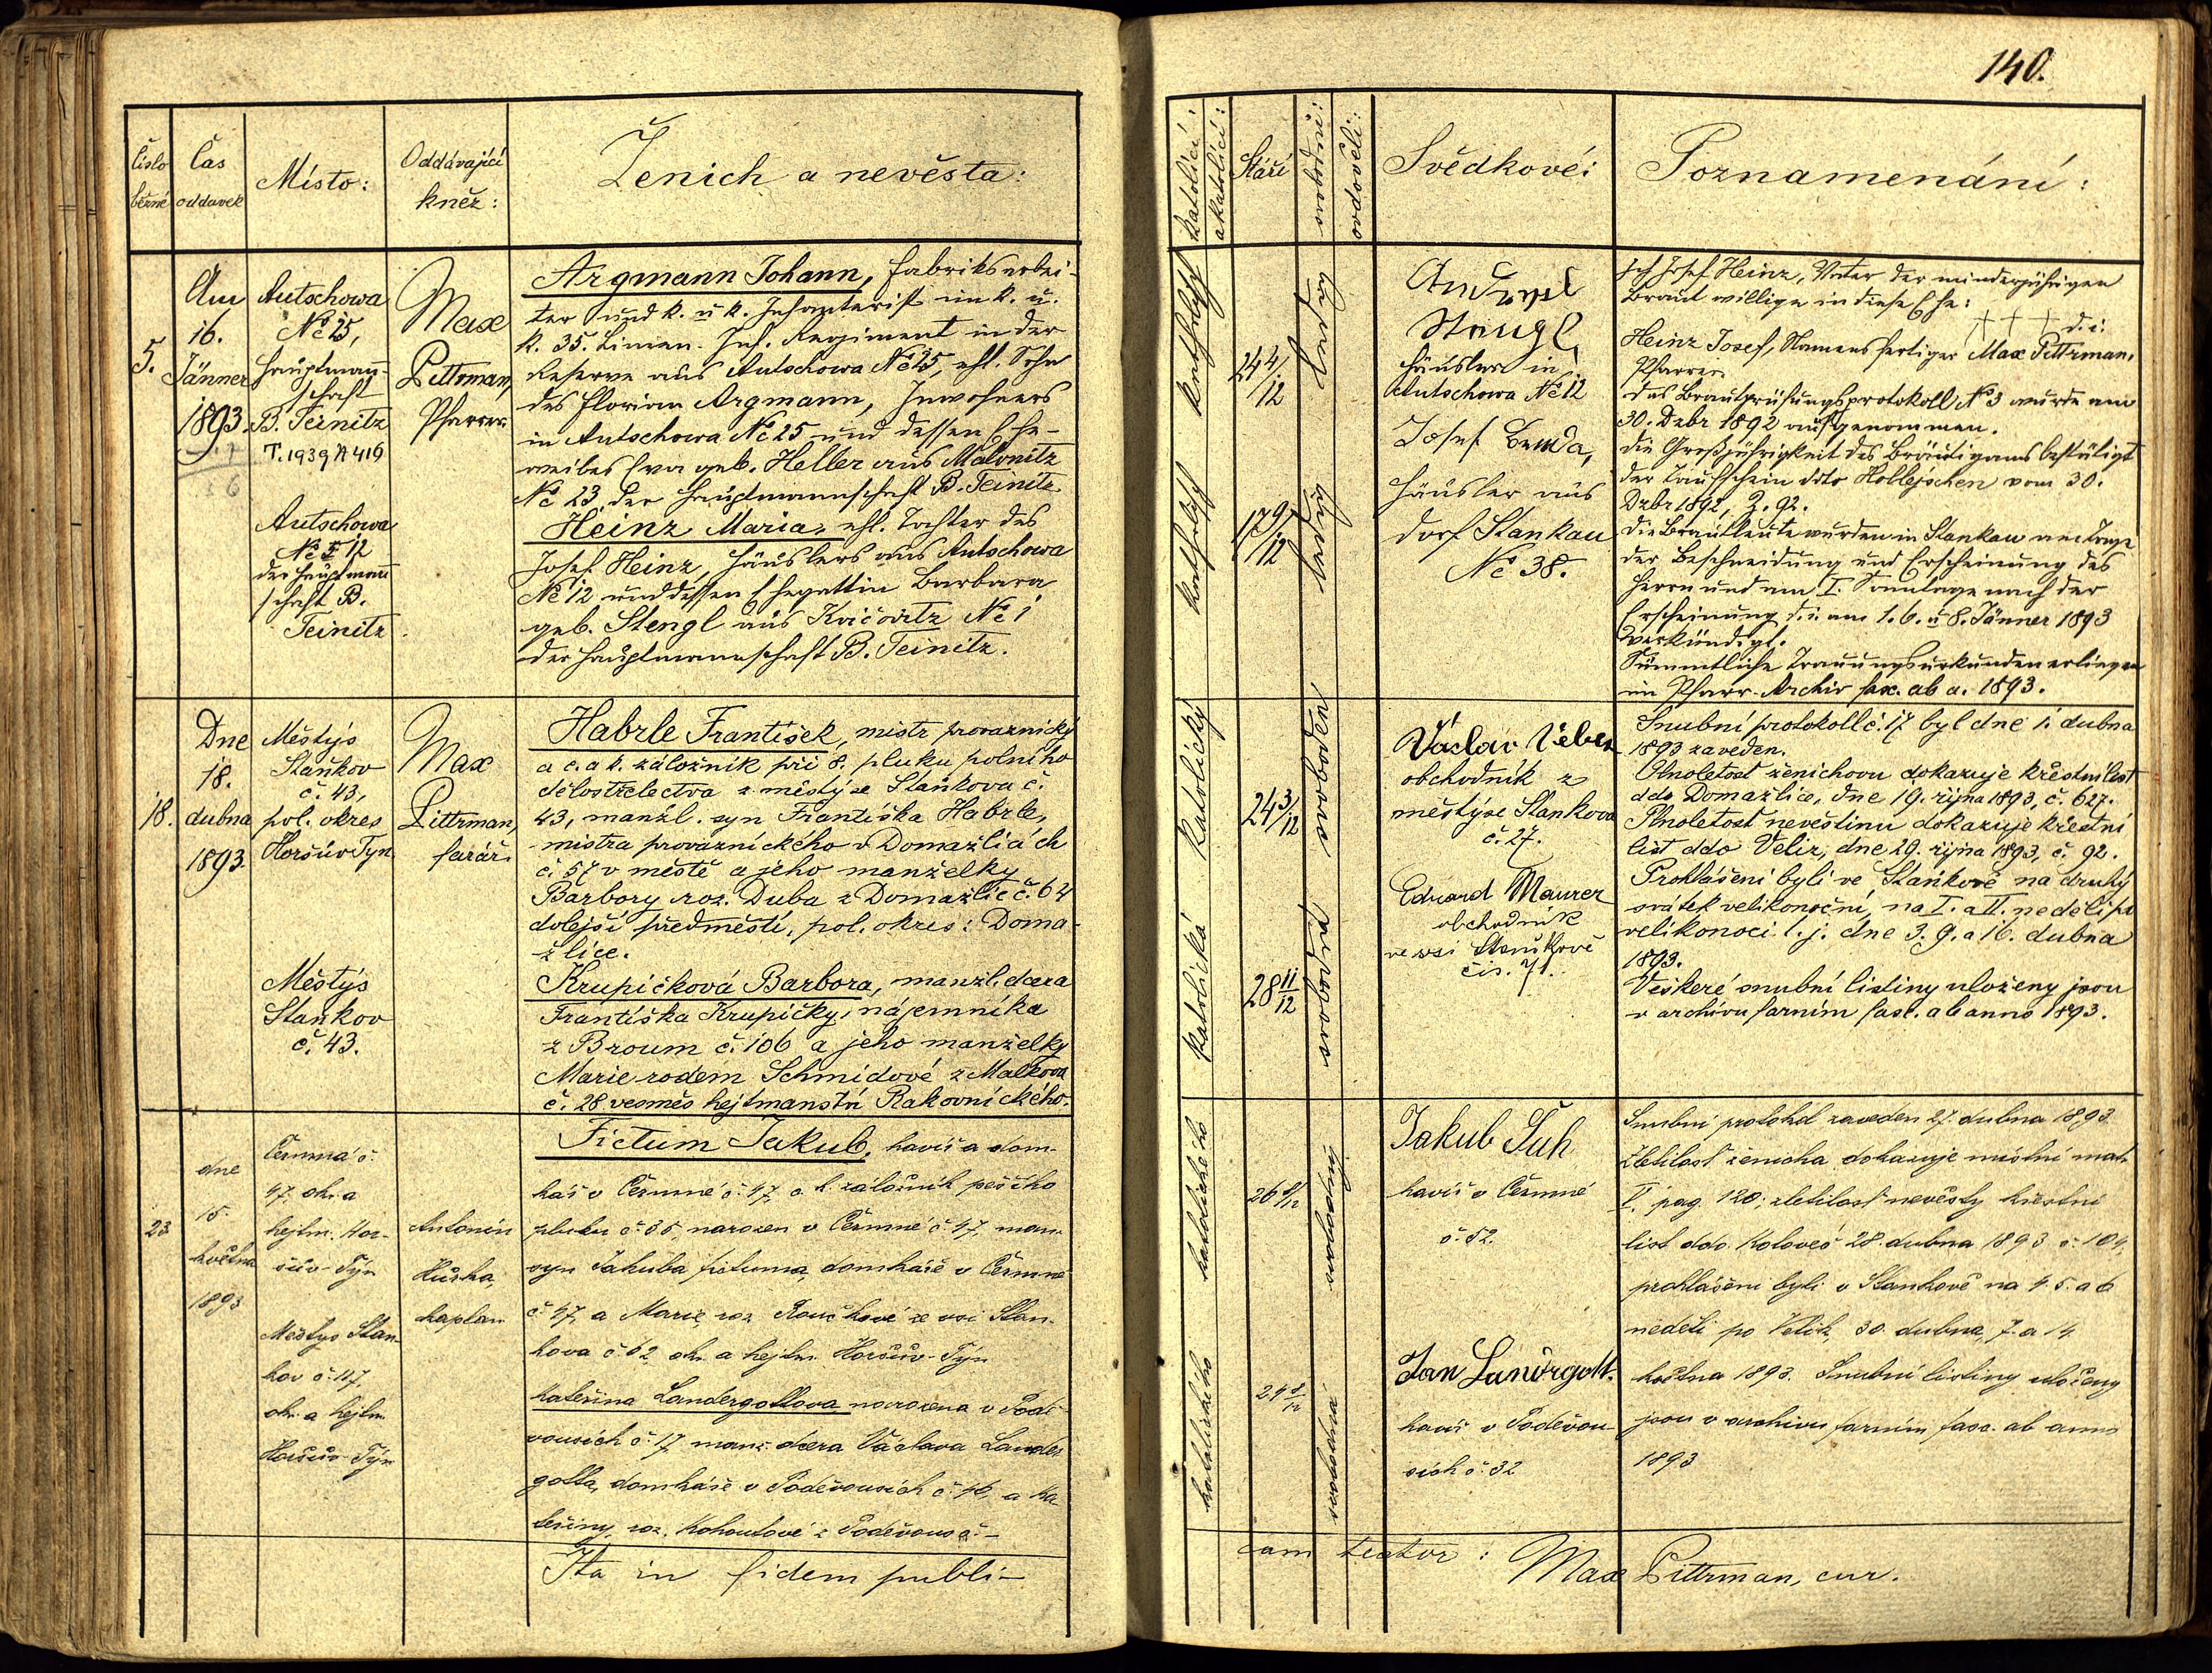 140.
Číslo běžné
Čas oddavek
Místo:
Oddávající kněz:
Ženich a nevěsta:
katolíci:
akatolíci:
Stáří
svobodní:
ovdověli:
Svědkové:
Poznamenání:
5.
Am
16.
Jänner
1893.
Autschowa
No 25,
Hauptmann-
schaft
B. Teinitz
T. 1939 A 419
Autschowa
No 12
der Hauptmann
schaft B.
Teinitz.
Max
Pittrman,
Pfarrer.
Argmann Johann, Fabriksarbei-
ter und k. u k. Infanterist im k. u.
k. 35. Linien-Inf. Regiment in der
Reserve aus Autschowa No 25, ehl. Sohn
des Florian Argmann, Inwohners
in Autschowa No 25 und dessen Ehe-
weibes Eva geb. Heller aus Malonitz
No 23 der Hauptmannschaft B. Teinitz
Heinz Maria, ehl. Tochter des
Josef Heinz, Häuslers aus Autschowa
No 12 und dessen Ehegattin Barbara
geb. Stengl aus Kvičovitz No 1
der Hauptmannschaft B. Teinitz.
katholisch
katholisch
24 4/12
17 9/12
ledig
ledig
Stengl
Häusler in
Autschowa No 12
Josef Benda,
Häusler aus
Dorf Stankau
No 38.
Ich Josef Heinz, Vater der minderjährigen
Braut willige in diese Ehe:
+ + + d. i.
Heinz Josef, Namensfertiger Max Pittrman,
Pfarrer.
Das Brautprüfungsprotokoll No 3 wurde am
30. Dzbr 1892 aufgenommen.
Die Großjährigkeit des Bräutigams bestätigt
der Taufschein ddto Hollejschen vom 30.
Dzbr 1892, Z. 92.
Die Brautleute wurden in Stankau am Tage
der Beschneidung und Erscheinung des
Herrn und am I. Sonntage nach der
Erscheinung d. i. am 1. 6. u 8. Jänner 1893
verkündigt.
Sämmtliche Trauungsurkunden erliegen
im Pfarr-Archiv fasc. ab a. 1893.
18.
Dne
18.
dubna
1893
Městýs
Staňkov
č. 43,
pol. okres
Horšův Týn.
Městýs
Staňkov
č. 43.
Max
Pittrman,
farář.
Habrle František, mistr provaznický
a c. a k. záložník při 8. pluku polního
dělostřelectva z městýse Staňkova č.
43, manžl. syn Františka Habrle,
mistra provaznického v Domažlicích
č. 57 v městě a jeho manželky
Barbory roz. Duba z Domažlic č. 64
dolejší předměstí, pol. okres: Doma-
žlice.
Krupičková Barbora, manžl. dcera
Františka Krupičky, nájemníka
z Broum č. 106 a jeho manželky
Marie rodem Schmidové z Malkova
č. 28 vesměs hejtmanství Rakovnického.
katolický
katolická
24 3/12
28 11/12
svoboden
svobodna
Václav Veber
obchodník z
městýse Stankova
č. 27.
Eduard Maurer
obchodník
ve vsi Staňkově
čís. 71.
Snubní protokoll č. 17 byl dne 1. dubna
1893 zaveden.
Plnoletost ženichovu dokazuje křestní list
ddo Domažlice, dne 19. října 1893, č. 627.
Plnoletost nevěstinu dokazuje křestní
list ddo Veliz, dne 20. října 1893, č. 92.
Prohlášeni byli ve Staňkově na druhý
svátek velikonoční, na I. a II. neděli po
velikonoci t. j. dne 3. 9. a 16. dubna
1893.
Veškeré snubní listiny uloženy jsou
v archivu farním fasc. ab anno 1893.
23
dne
15.
května
1893
Čermná č.
47, okr. a
hejtm. Hor-
šův-Týn
Městys Stan-
kov č. 117.
okr. a hejtm.
Horšův-Týn
Antonín
Hůrka,
kaplan
Fictum Jakub, havíř a dom-
kář v Čermné č. 47, c. k. záložník pěšího
pluku č. 35, narozen v Čermné č. 47, man.
syn Jakuba fictuma, domkáře v Čermné
č. 47, a Marie, roz. Rouchové ze vsi Stan-
kova č. 62 okr. a hejtm. Horšův-Týn
Kateřina Landergottova narozena v Podě-
vousích č. 17, manž. dcera Václava Lander
gotta, domkáře v Poděvousích č. 16, a Ka-
teřiny, roz. Kohoutové z Poděvous č. –
katolického
katolického
26 8/12
24 8/12
svobodný
svobodná
Jakub Tuh
havíř v Čermné
č. 52.
Jan Landrgott.
havíř v Poděvou-
sích č. 32
Snubní protokol zaveden 27. dubna 1893.
Zletilost ženicha dokazuje místní matr.
I. pag. 120; zletilost nevěsty křestní
list ddo. Koloveč 28. dubna 1893 č. 104,
prohlášeni byli v Stankově na 4 5. a 6
neděli po Velik. 30. dubna, 7. a 14.
května 1893. Snubní listiny uloženy
jsou v archivu farním fasc. ab anno
1893
Ita in fidem publi-
cam testor: Max Pittrman, cur.